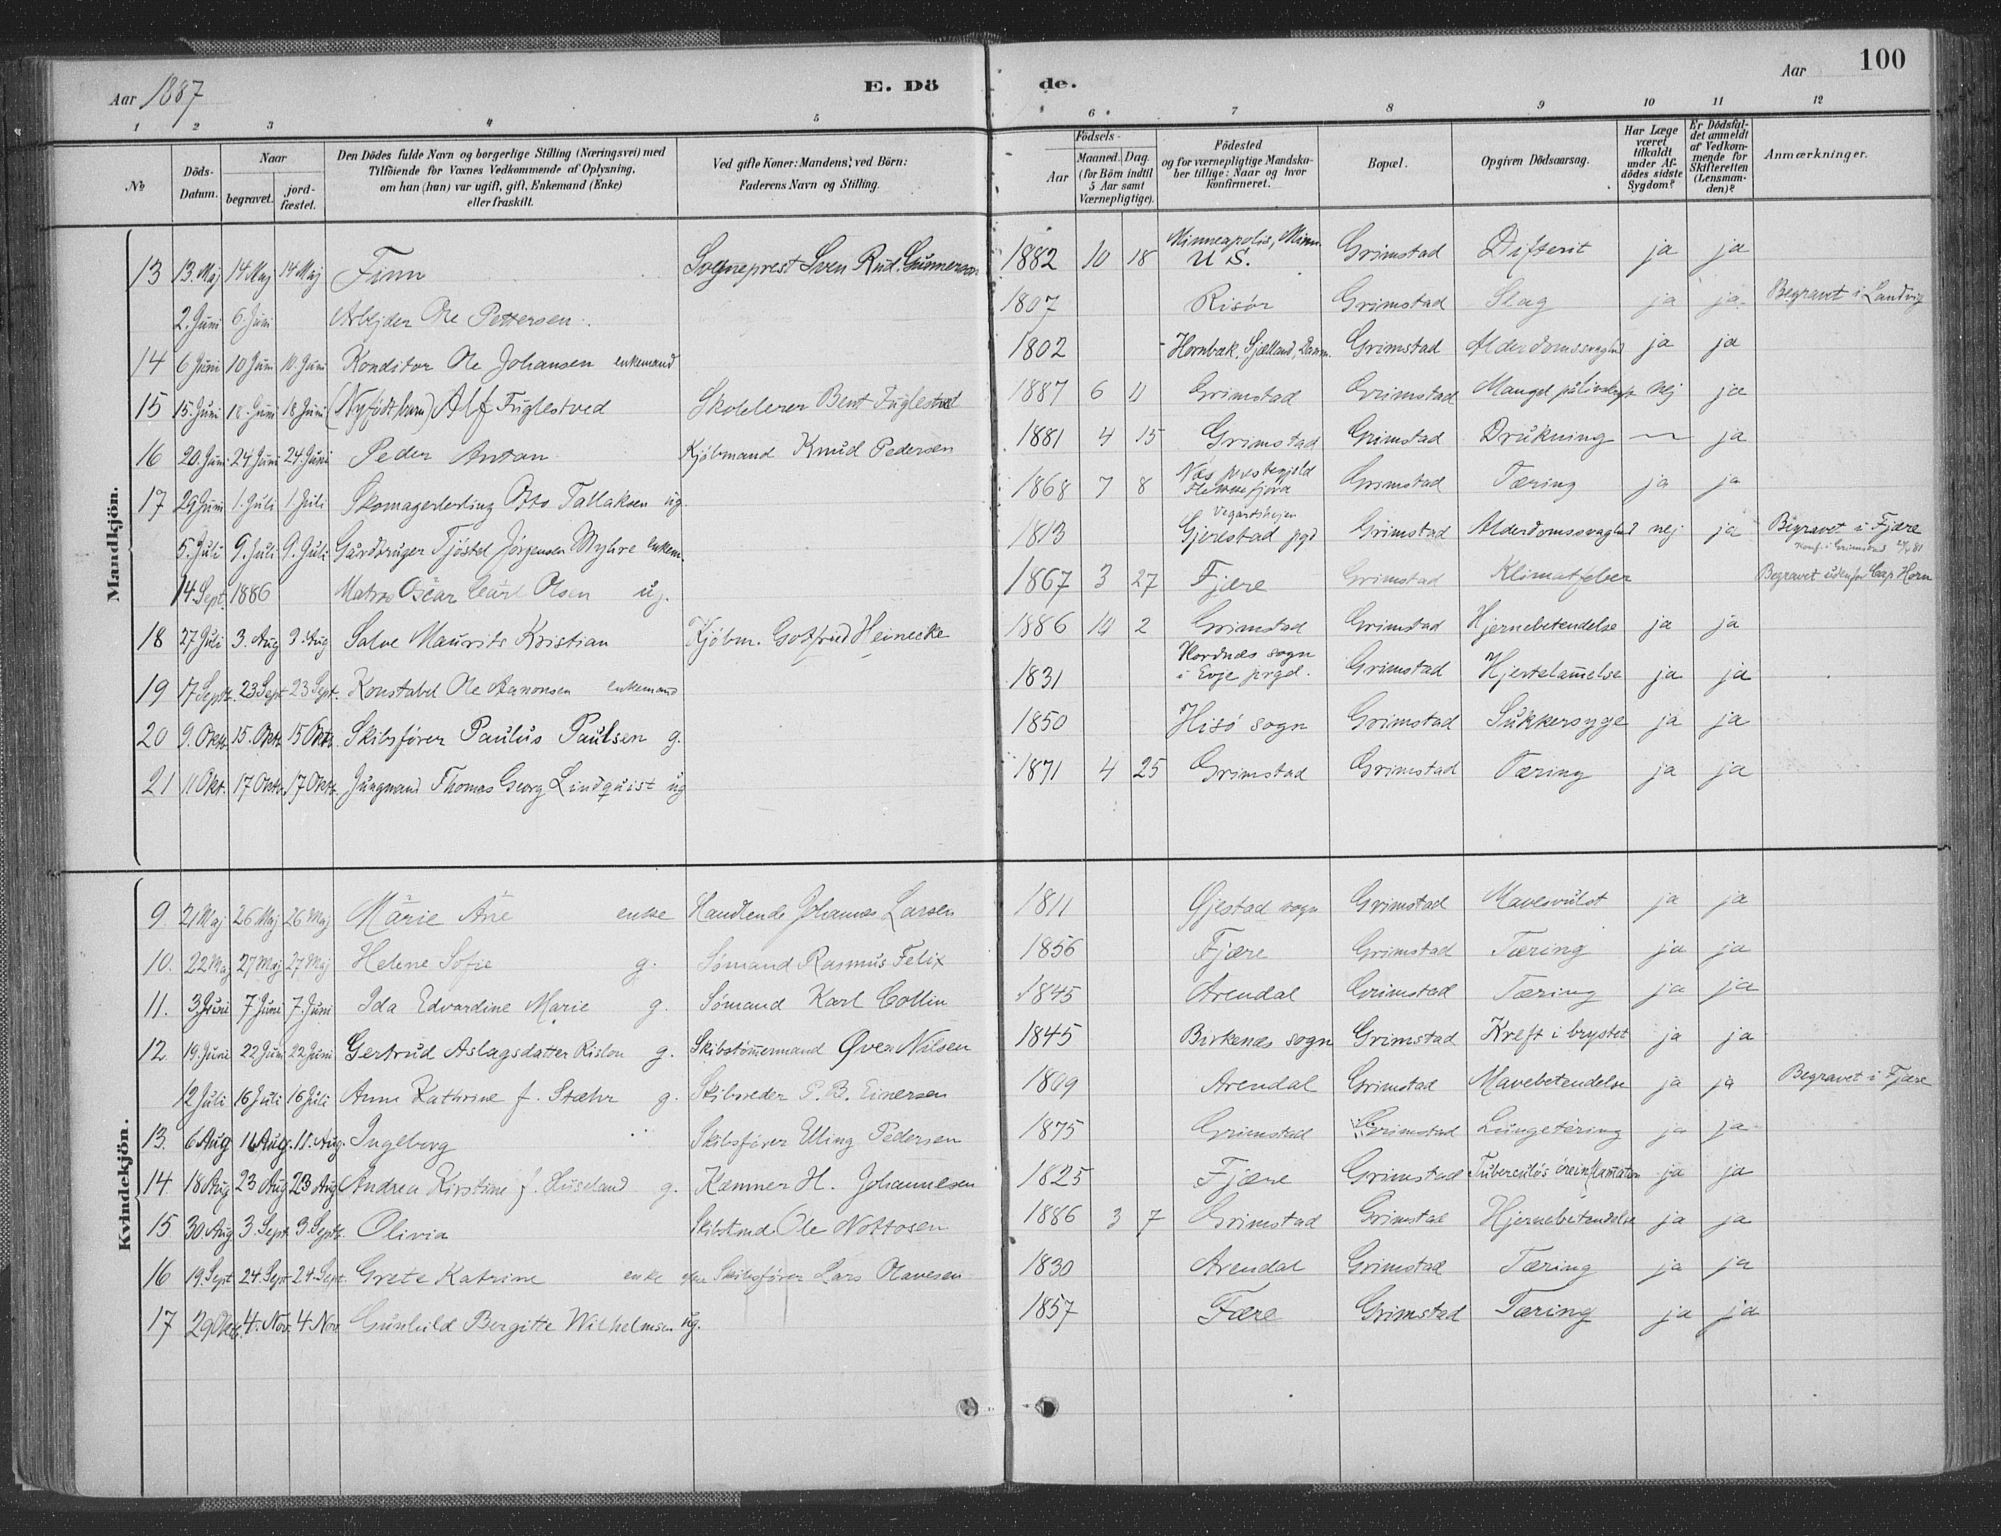 Aar 1887
E. Dö
de.
Aar
100
1 2 3 4 5 6 7 8 9 10 11 12
№
Döds-Datum.
Naar
begravet.
jord-fæstet.
Den Dödes fulde Navn og borgerlige Stilling (Næringsvei) med
Tilföiende for Voxnes Vedkommende af Oplysning,
om han (hun) var ugift, gift, Enkemand (Enke)
eller fraskilt.
Ved gifte Koner: Mandens, ved Börn:
Faderens Navn og Stilling.
Födsels-
Aar
Maaned. Dag.
(for Börn indtil
5 Aar samt
Værnepligtige).
Födested
og for værnepligtige Mandska-
ber tillige: Naar og hvor
konfirmeret.
Bopæl.
Opgiven Dödsaarsag.
Har Læge
været
tilkaldt
under Af-
dödes sidste
Sygdom?
Er Dödsfal-
det anmeldt
af Vedkom-
mende for
Skifteretten
(Lensman-
den)?
Anmærkninger.
Mandkjön.
13 13. Maj 14 Maj 14 Maj Finn Sogneprest Sven Rud. Gunnersen 1882 10 18 Minneapolis, Minn. U S. Grimstad Difterit ja ja
2. Juni 6. Juni Arbejder Ole Pettersen. 1807 Risør Grimstad Slag ja ja Begravet i Landvig
14 6 Juni 10 Juni 10. Juni Konditor Ole Johansen enkemand 1802 Hornbæk, Sjælland, Danm. Grimstad Alderdomssvaghed ja ja
15 15. Juni 18. Juni 18 Juni (Nyfødt barn) Alf Fuglestved Skolelærer Bent Fuglestved 1887 6 11 Grimstad Grimstad Mangel på livskraft nej ja
16 20. Juni 24 Juni 24. Juni Peder Anton Kjøbmand Knud Pedersen 1881 4 15 Grimstad Grimstad Drukning — ja
17 29 Juni 1. Juli 1 Juli Skomagerlærling Otto Tallaksen ug. 1868 7 8 Næs prestegjeld Flemmefjord Grimstad Tæring ja ja
5. Juli 9. Juli 9. Juli Gårdbruger Tjøstel Jørgensen Myhre enkem. 1813 Vegardshejen Gjerestad pgd Grimstad Alderdomssvaghed nej ja Begravet i Fjære
14. Sept. 1886 Matros Oscar Carl Olsen ug. 1867 3 27 Fjære Grimstad Klimatfeber Konf. i Grimstad 81 Begravet udenfor Cap Horn
18 27 Juli 3. Aug 3. Aug Salve Maurits Kristian Kjøbm. Gotfried Heinecke 1886 10 2 Grimstad Grimstad Hjernebetendelse ja ja
19 17 Septr. 23 Sept 23 Sept. Konstabel Ole Aanonsen enkemand 1831 Hordnes sogn i Evje prgd. Grimstad Hjertelam̄else ja ja
20 9. Oktr. 15. Oktr. 15 Oktr. Skibsfører Paulus Paulsen g. 1850 Hisø sogn Grimstad Sukkersyge ja ja
21 11 Okt. 17 Oktr. 17 Oktr. Jungmand Thomas Georg Lindquist ug 1871 4 25 Grimstad Grimstad Tæring ja ja
Kvindekjön.
9. 21 Maj 26 Maj 26 Maj Marie Ane enke Handlende Johannes Larsen 1811 Øjestad sogn Grimstad Mavesvulst ja ja
10. 22 Maj 27 Maj 27 Maj Helene Sofie g. Sømand Rasmus Felix 1856 Fjære Grimstad Tæring ja ja
11. 3 Juni 7 Juni 7. Juni Ida Edvardine Marie g. Sømand Karl Collin 1845 Arendal Grimstad Tæring ja ja
12 19. Juni 22 Juni 22 Juni Gertrud Aslagsdatter Rislou g. Skibstøm̄ermand Øven Nilsen 1845 Birkenæs sogn Grimstad Kreft i brystet ja ja
12 Juli 16 Juli 16 Juli Anne Kathrine f. Stæhr g. Skibsreder P. B. Einersen 1809 Arendal Grimstad Mavebetendelse ja ja Begravet i Fjære
13. 6 Aug 11 Aug. 11. Aug. Ingeborg Skibsfører Elling Pedersen 1875 Grimstad Grimstad Lungetæring ja ja
14 18 Aug 23 Aug 23 Aug Andrea Kirstine f. Huseland g. Kæmner H. Johannesen 1825 Fjære Grimstad Tuberculøs ja ja
15 30 Aug. 3. Sept. 3. Septr. Olivia Ole Nottosen 1886 3 7 Grimstad Grimstad Hjernebetendelse ja ja
16 19. Sept 24. Sept 24. Sept. Grete Katrine enke efter Skibsfører Lars Olavesen 1830 Arendal Grimstad Tæring ja ja
17 29 Oktr. 4. Nov. 4. Nov Gunhild Bergitte Wilhelmsen ug. 1857 Fære Grimstad Tæring ja ja